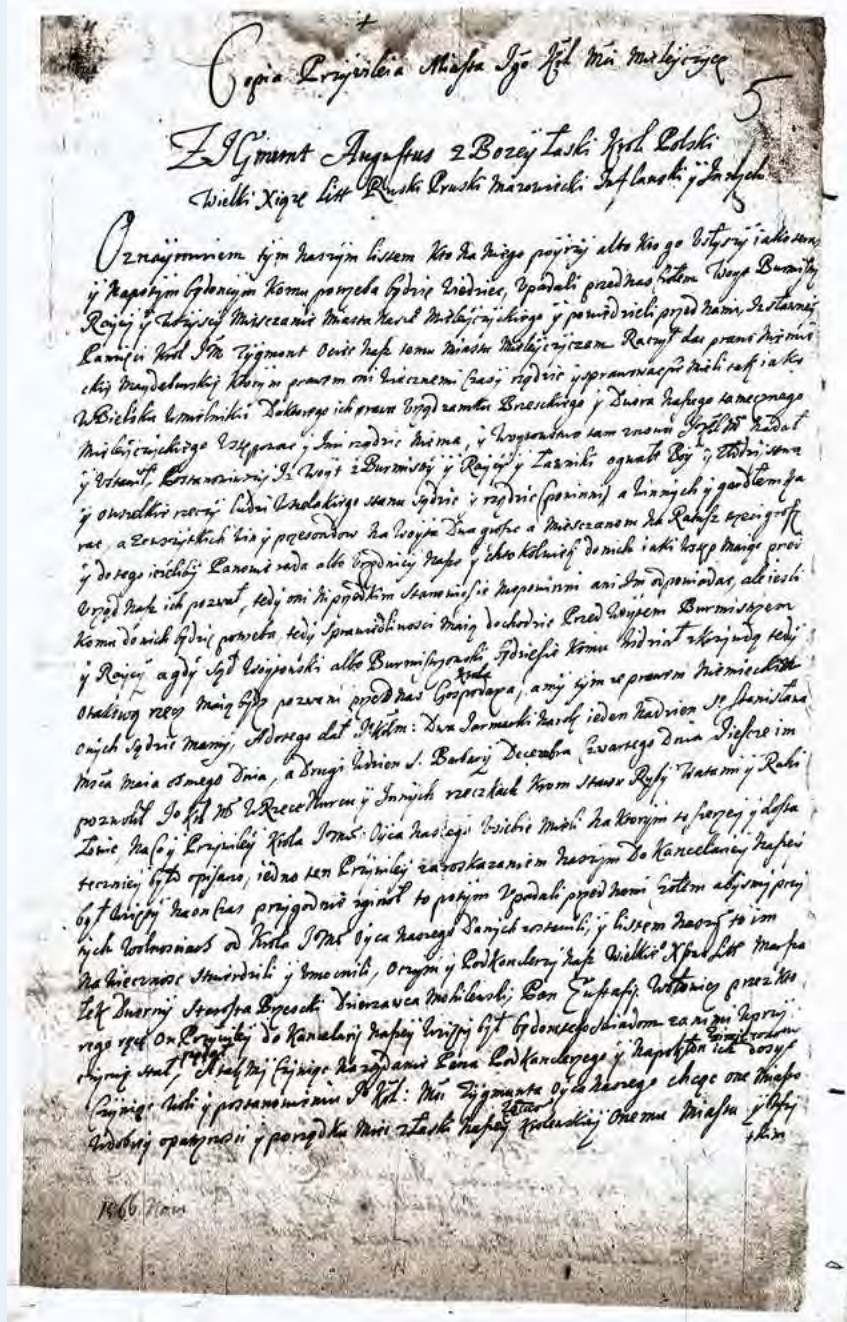 Copia Przywileia Miasta Jgo Kol Mci Mieleyczyc
5
ZIGmunt Augustus z Bozey Łaski Krol Polski
Wielki Xiąze Litt Ruski Pruski Mazowiecki Inflanski y Inszych
Oznaymuiem tym naszym listem kto na niego poyzrzy albo kto go usłyszy iako teraz
y napotym będoncym komu potrzeba będzie wiedziec, upadali przed nas czołem Woyt Burmistrz
Raycy y wszyscy mieszczanie miasta nasze Mieleyczyckiego y powiedzieli przed nami, iz sławney
Pamięci Krol JM Zygmont Ociec nasz temu miastu Mieleyczyczem Raczył dac prawo Niemie
ckie Maydeburskie ktorym prawem oni wiecznemi czasy rządzic y sprawowac sie mieli tak iako
w Bielsku do ktorego ich prawa Urząd zamku Brzeskiego y Dwora naszego tamecznego
Mieleyczyckiego wstępowac y Imi rządzic niema, y Woytowstwo tam znowu nadał
y ustawił, Postanowiwszy Iz Woyt z Burmistrzy y Raycy y Ławniki o gwałt Boy y złodzieystwa
y o wszelkie rzeczy ludzi wszelakiego stanu sądzic y rządzic (powinni) a winnych y gardłem ka
rac, a zewszytkich win y przesondow na Woyta dwa grosze a mieszczanom na Ratusz trzeci grosz
y do tego ieżeliby Panowie rada albo Urzędnicy naszy y chto kolwiek do nich iaki wstęp maiąc przez
Urząd nasz ich pozwał, tedy oni ni przed kim stanowic sie niepowinni ani Im odpowiadac, ale iesli
komu do nich będzie potrzeba, tedy sprawiedliwosci maią dochodzic Przed Woytem Burmistrzem
y Raycy, a gdy Sąd Woytowski albo Burmistrzowski, gdzie sie komu widział z krzywdą tedy
o takową rzecz maią bydz pozwani przed nas Krola Gospodara, a my tym ze prawem Niemieckim
onych sądzic mamy, A do tego dał Dwa Jarmarki na rok ieden na dzien St Stanisława
Msca Maia osmego dnia, a drugi w dzien S. Barbary Decembra Czwartego Dnia Jeszcze im
pozwolił Jo Kol Mc w Rzece Nurcu y Innych rzeczkach krom stawow Ryby Watami y Raki
Łowic, na co y Przywiley Krola JMci Oyca naszego u siebie mieli na ktorym to szerzey y dosta
teczniey było opisano, iedno ten Przywiley za roskazaniem naszym do Kancelaryi naszey
był wzięty na on czas przygodnie zginoł to potym upadali przed nami czołem abysmy przy
tych wolnosciach od Krola JMci Oyca naszego danych zostawili, y listem naszym to im
na wiecznosc stwerdzili y umocnili, o czym y Podkanclerzy nasz Wielkie Xstwa Litt Marsza
łek Dworny Starosta Brzescki Dzierzawca Mohilewski Pan Eustafij Wołowicz przez kto
rego ręce on Przywiley do Kancelaryi naszey wzięty był będonc tego swiadom za nimi w przy
czynie stał, A tak my czyniąc na żądanie Pana Podkanclerzego y napokorne ich dosyc
czyniąc woli y postanowieniu Jo Kol: Mci Zygmunta Oyca naszego chcąc one miasto
w dobrey opatrznosci y porządku miec z łaski naszey Krolewskiey onemu Miastu y wszy
tkim
1566 Now